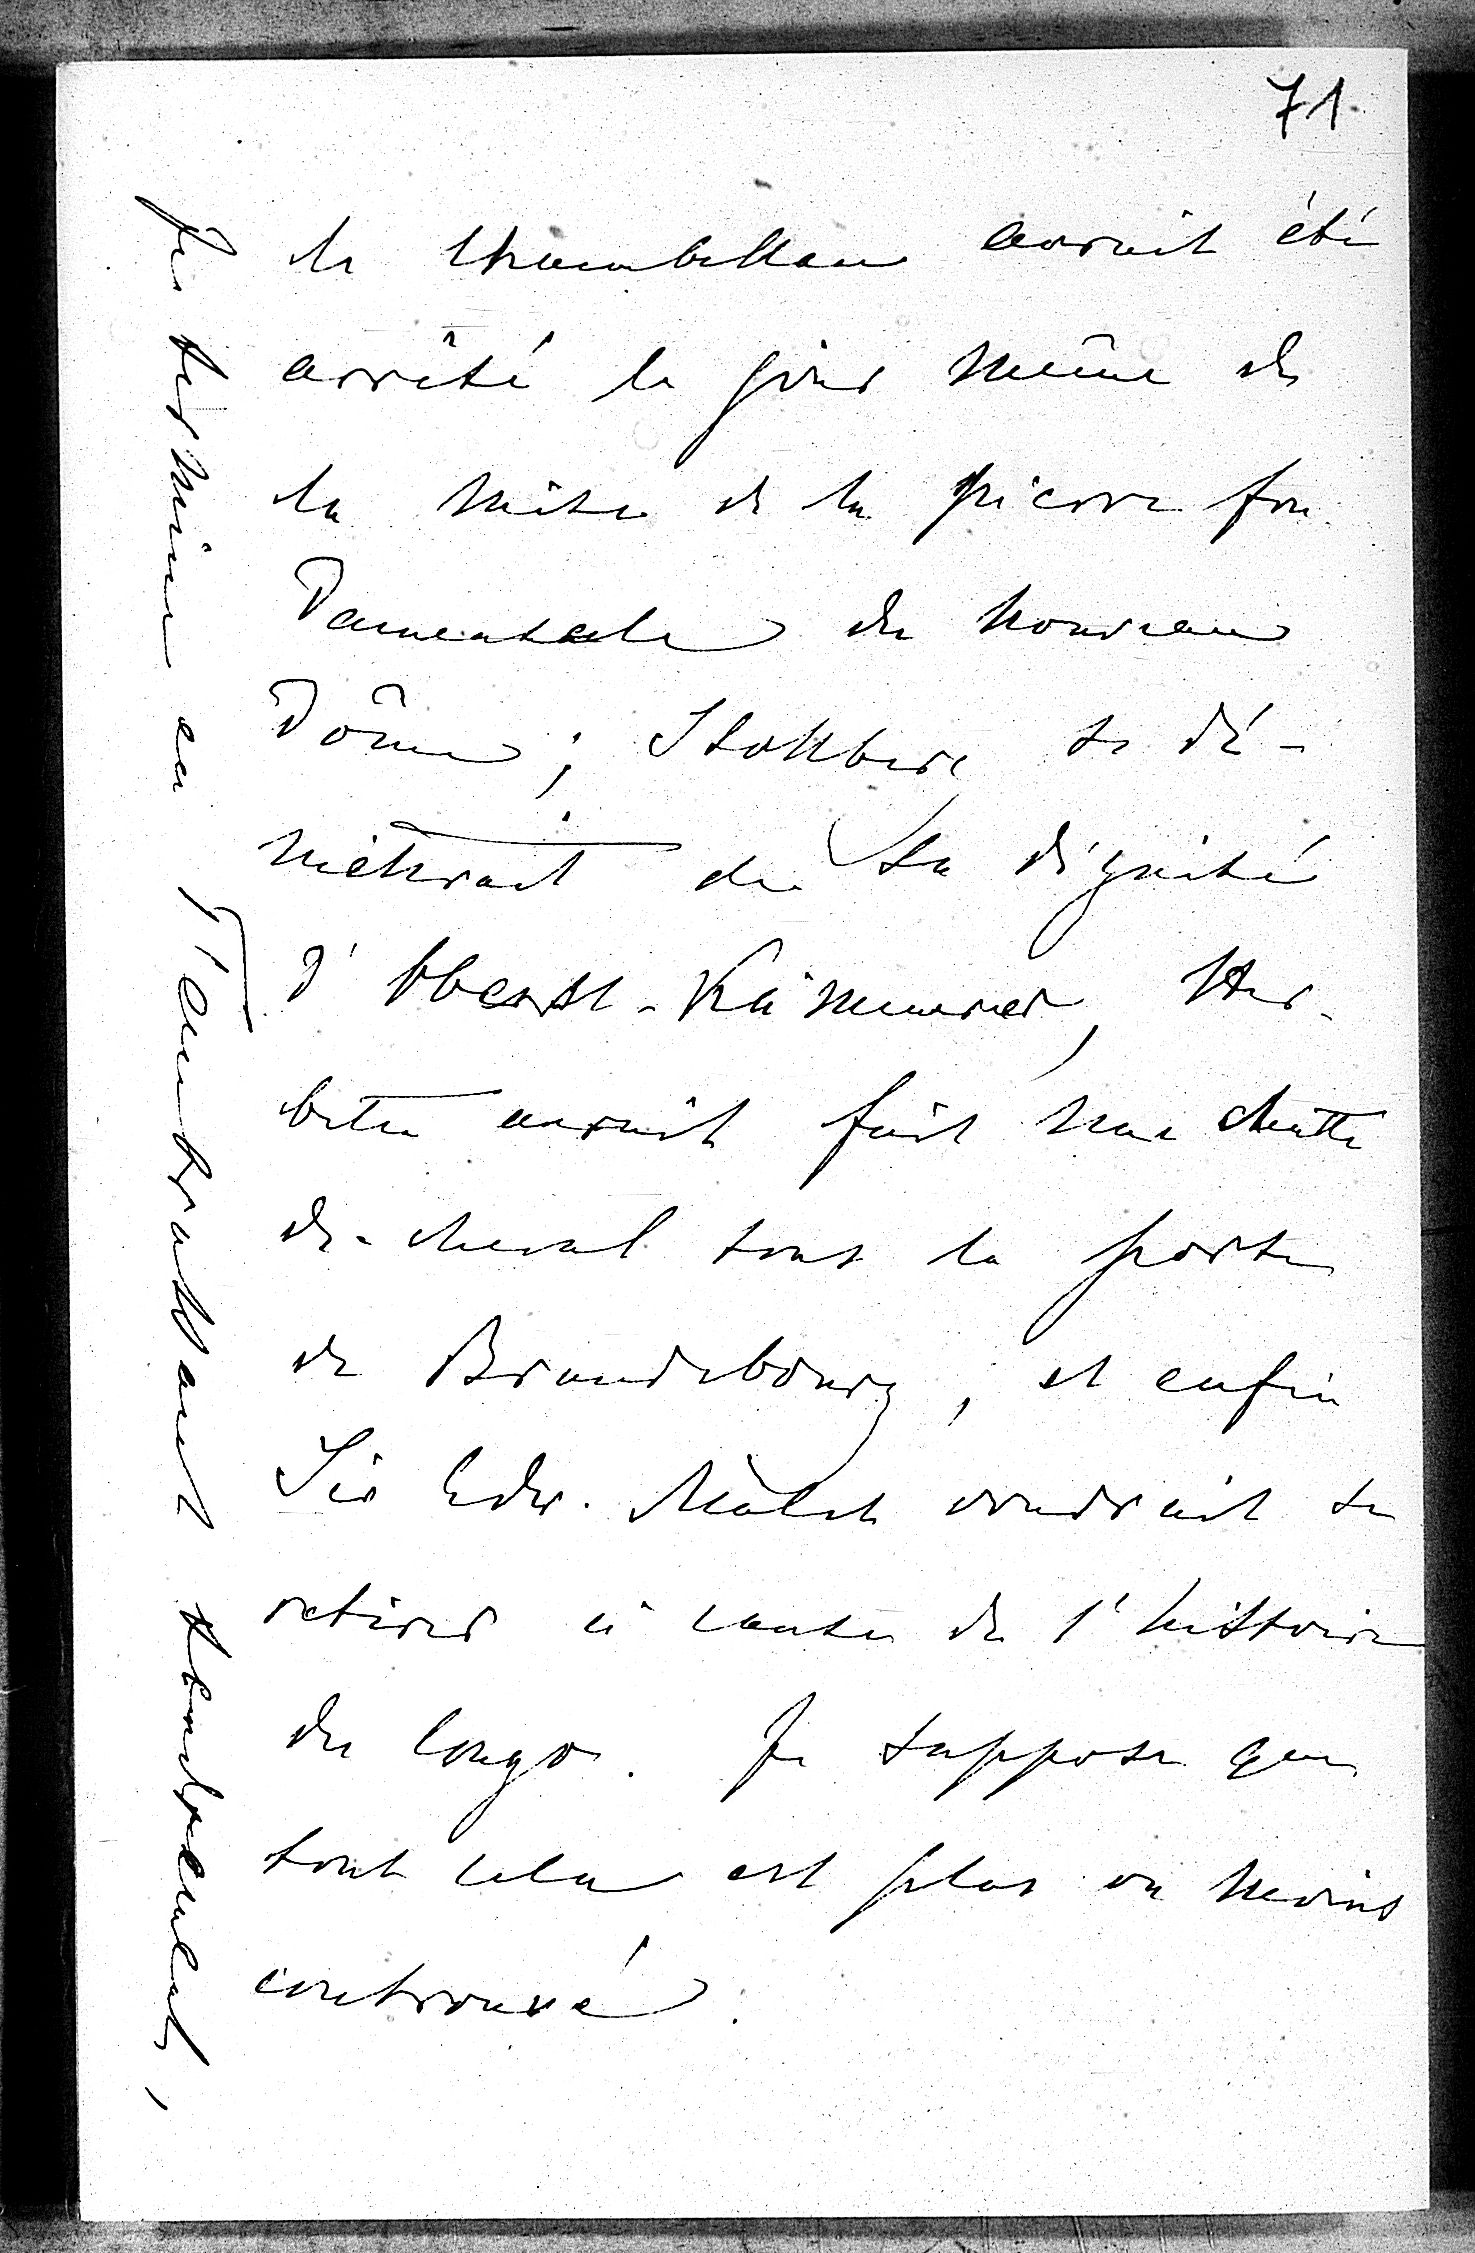 71
de Chambellan aurait été
arrêté le jour même de
la mise de la pierre fon
damentale du nouveau
Dôme; Stollberg se dé-
mettrait de sa dignité
d'Oberst-Kämmerer, Her-
bette aurait fait une chutte
de-cheval sous la porte
de Brandebourg, et enfin
Sir Edw. Malet voudrait se
retirer à cause de l'histoire
du Congo. Je suppose que
tout cela est plus ou moins
controuvé.
Je termine en T'embrassant tendrement,